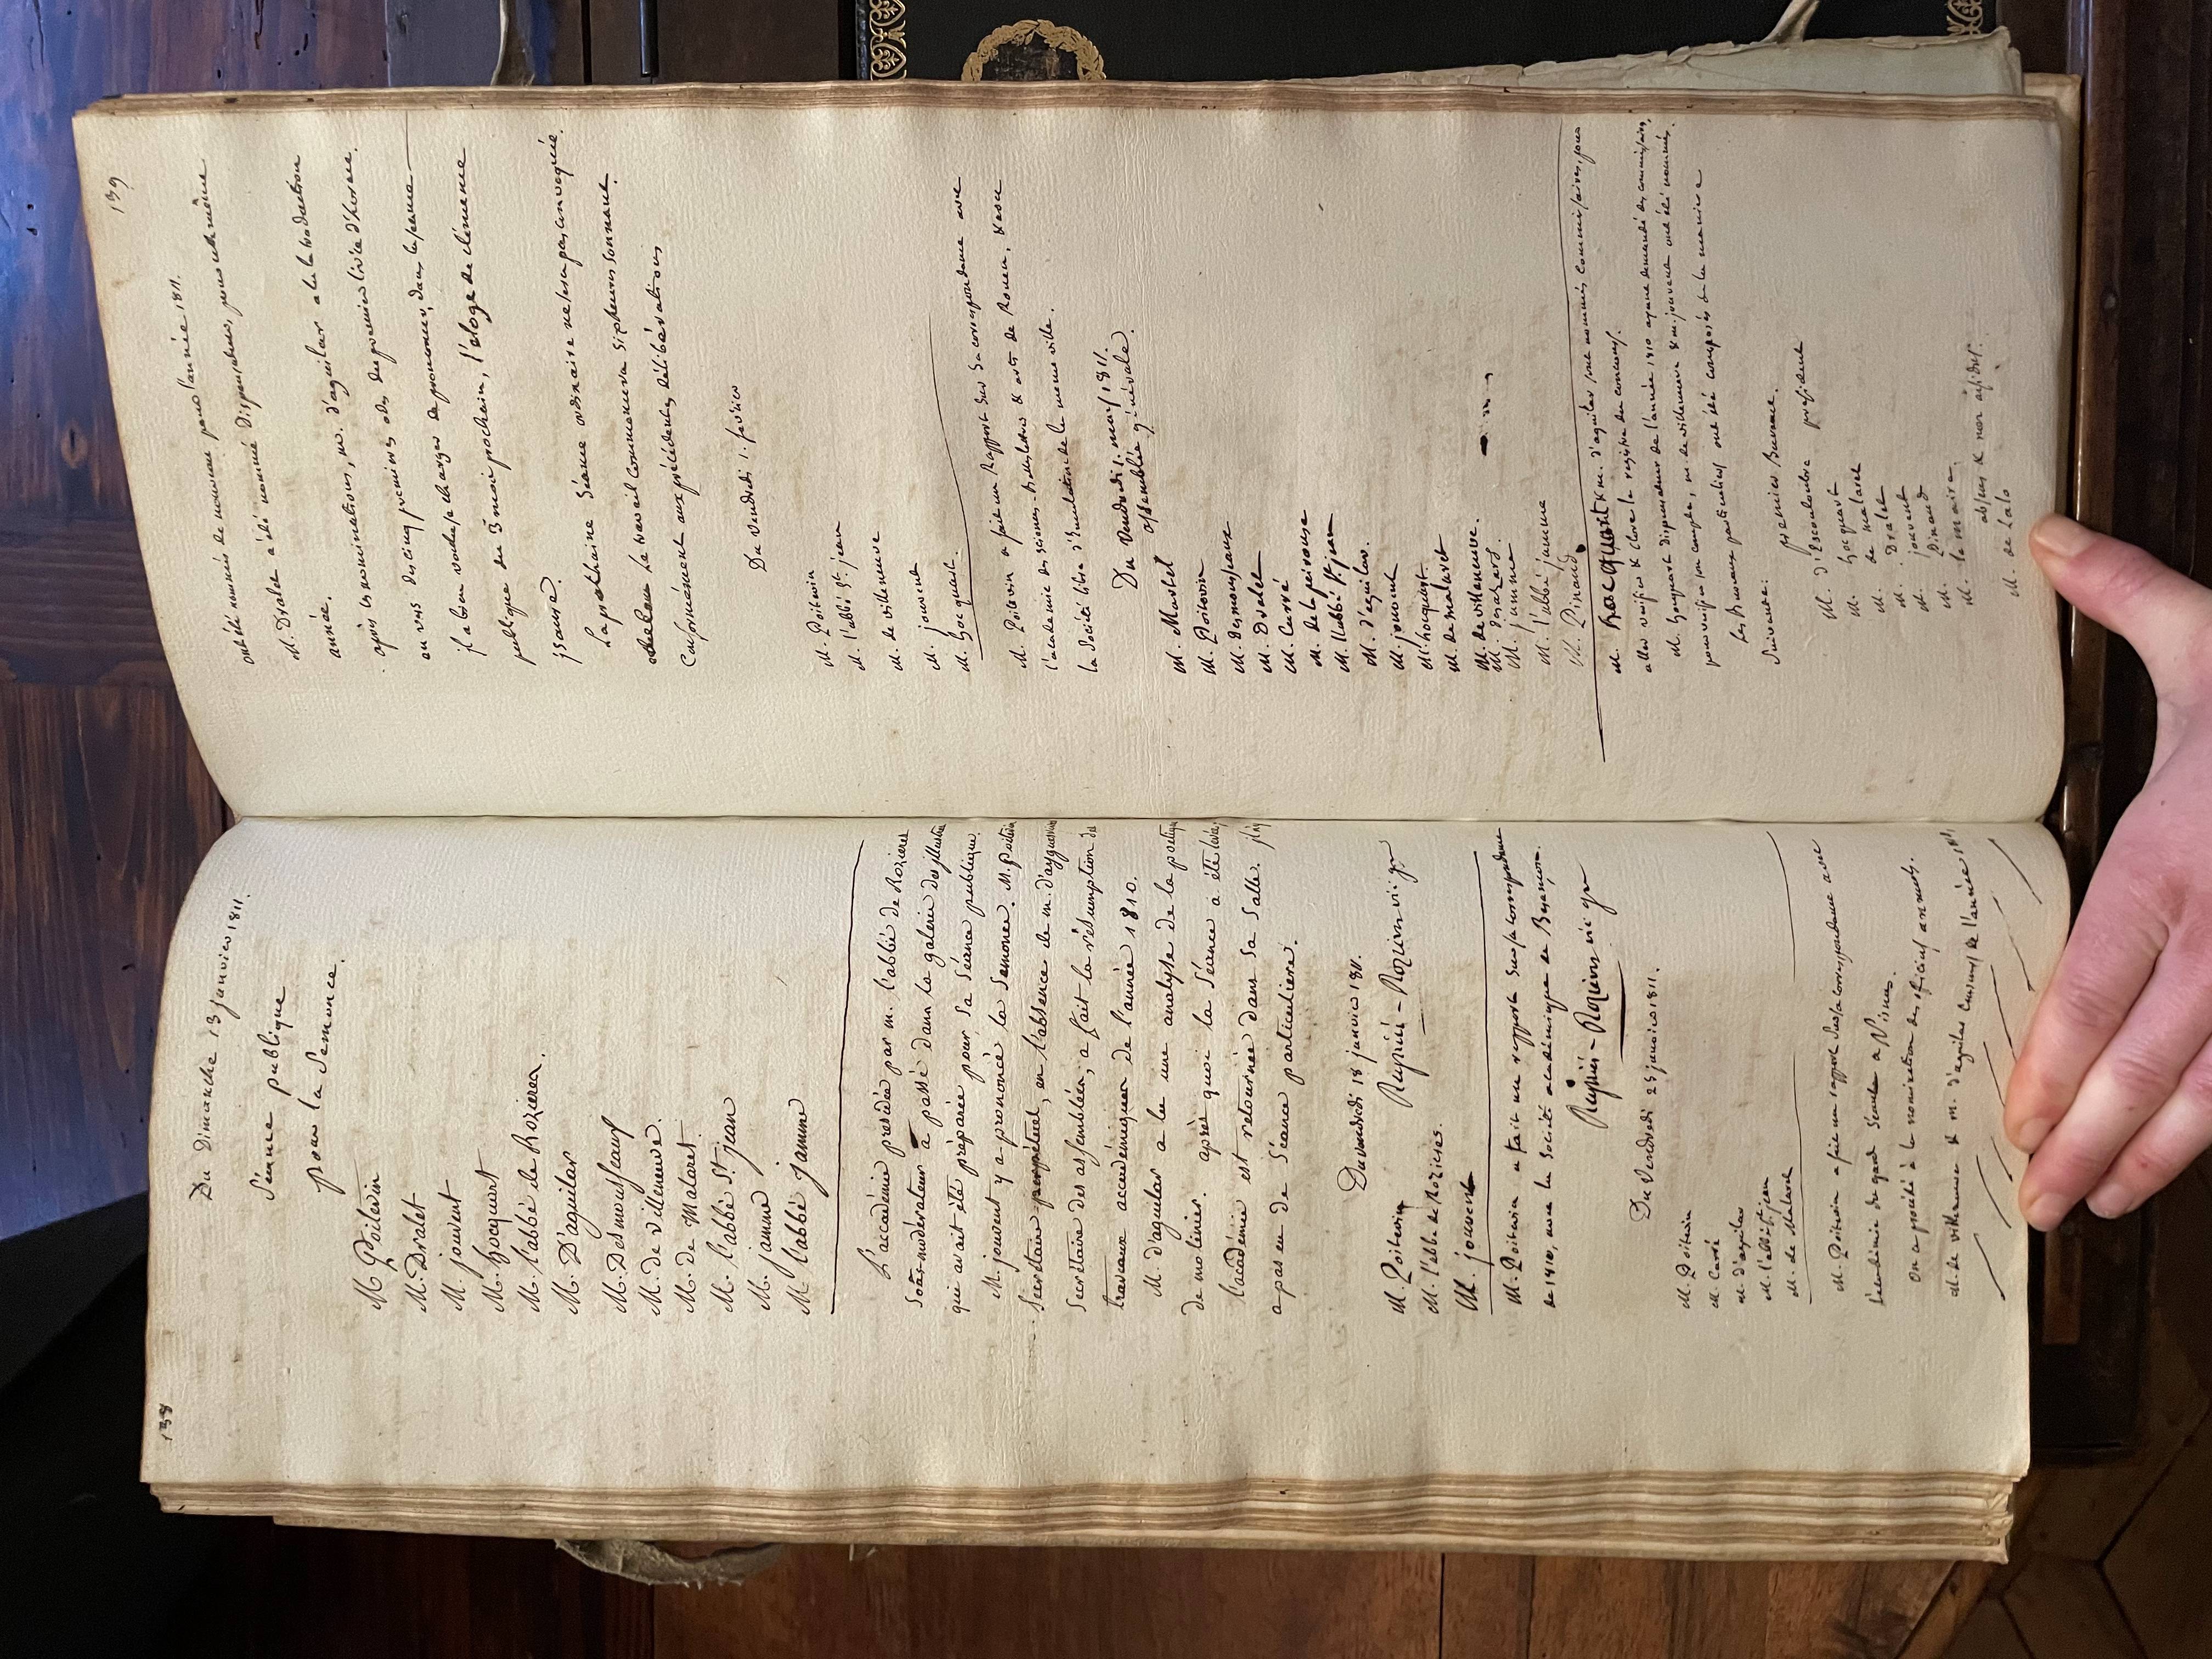 138
Du Dimanche 13 janvier 1811.
Séance publique
pour la Semonce.
M. Poitevin
M. Dralet
M. jouvent
M. hocquart
M. l'abbé de Rozieres
M. D'aguilar
M. Desmousseaux
M. de villeneuve.
M. de Malaret.
M. l'abbé St. jean
M. jamme
M. l'abbé jamme
L'académie présidée par m. l'abbé de Rozieres
Sous-modérateur a passé dans la galerie des illustres
qui avait été préparée pour sa Séance publique.
M. jouvent y a prononcé la Semonce. M. Poitevin
Secrétaire perpétuel, en l'absence de m. d'ayguesvives
Secrétaire des assemblées, a fait la résumption des
travaux académiques de l'année 1810.
M. d'aguilar a lu une analyse de la poétique
de molinier. après quoi la Séance a été levée,
l'académie est retournée dans sa Salle. il n'y
a pas eu de Séance particuliere.
Du vendredi 18 janvier 1811.
M. Poitevin
M. l'abbé de Rozieres.
M. jouvent
M. Poitevin a fait un rapport sur sa correspondance
de 1810, avec la Société académique de Besançon.
Du Vendredi 25 janvier 1811.
M. Poitevin
M. Carré
M. d'aguilar
M. l'abbé St. jean
M. de Malaret
M. Poitevin a fait un rapport sur sa correspondance avec
l'académie du gard Séante a Nismes.
On a procédé à la nomination des officiers annuels.
M. de villeneuve & m. d'aguilar Censeurs de l'année 1810,
139
ont été nommés de nouveau pour l'année 1811.
M. Dralet a été nommé Dispensateur, pour la même
année.
après les nominations, m. d'aguilar a lu la traduction
en vers des cinq premieres odes du premier livre d'horace.
il a bien voulu se charger de prononcer, dans la séance
publique du 3 mai prochain, l'éloge de clémence
isaure.
La prochaine Séance ordinaire ne sera pas convoquée.
Le travail commencera Six heures sonnant.
Conformément aux précédentes délibérations
Du Vendredi 1. février
M. Poitevin
M. l'abbé St. jean
M. de villeneuve
M. jouvent
M. hocquart.
M. Poitevin a fait un Rapport sur sa correspondance avec
l'académie des sciences, belles lettres & arts de Rouen, & avec
la Société libre d'Emulation de la même ville.
Du Vendredi 1. mars 1811.
assemblée générale.
M. Martel
M. Poitevin
M. desmousseaux
M. Dralet
M. Carré
M. de lapeirouse
M. l'abbé St. jean
M. d'aguilar.
M. jouvent
M. hocquart.
M. de malaret
M. de villeneuve.
M. jamme
M. l'abbé jamme
M. Pinaud
M. hocquart & m. d'aguilar sont nommés commissaires, pour
aller vérifier & clorre le registre du concours.
M. hocquart dispensateur de l'année 1810 ayant demandé des commissaires,
pour vérifier son compte, m. de villeneuve & m. jouvent ont été nommés.
Les Bureaux particuliers ont été composés de la maniere
Suivante:
premier Bureau.
M. d'Escouloubre président
M. hocquart
M. de malaret
M. Dralet
M. jouvent
M. Pinaud
M. le maire,
absens & non assidus.
M. de Lalo